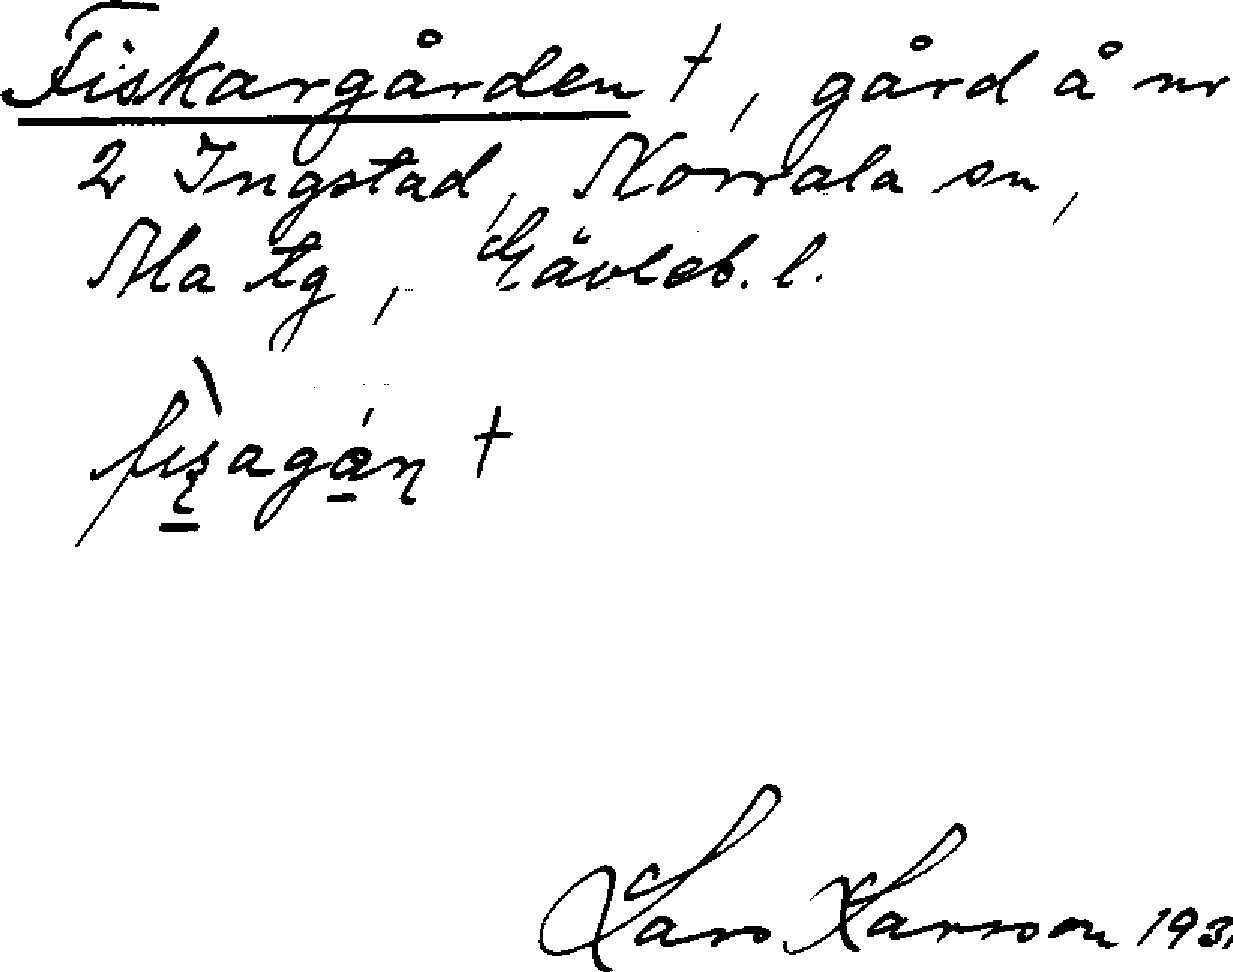 Fiskargården †, gård å nr
2 Ingstad, Norrala sn,
Ala tg, Gävleb. l.
Lars Larsson 193